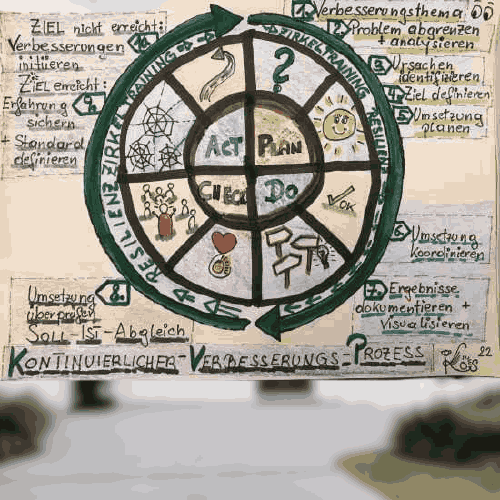 1. Verbesserungsthema
2. Problem abgrenzen
+ analysieren
3. Ursachen
identifizieren
4. Ziel definieren
5. Umsetzung
planen
6. Umsetzung
koordinieren
7. Ergebnisse
dokumentieren +
visualisieren
8. Umsetzung
überprüfen
SOLL-IST-Abgleich
9. ZIEL erreicht:
Erfahrung
sichern
+ Standard
definieren
10. ZIEL nicht erreicht:
Verbesserungen
initiieren
RESILIENZ ZIRKELTRAINING
ZIRKELTRAINING RESILIENZ
ACT PLAN
CHECK DO
?
OK
KONTINUIERLICHER-VERBESSERUNGS-PROZESS
22